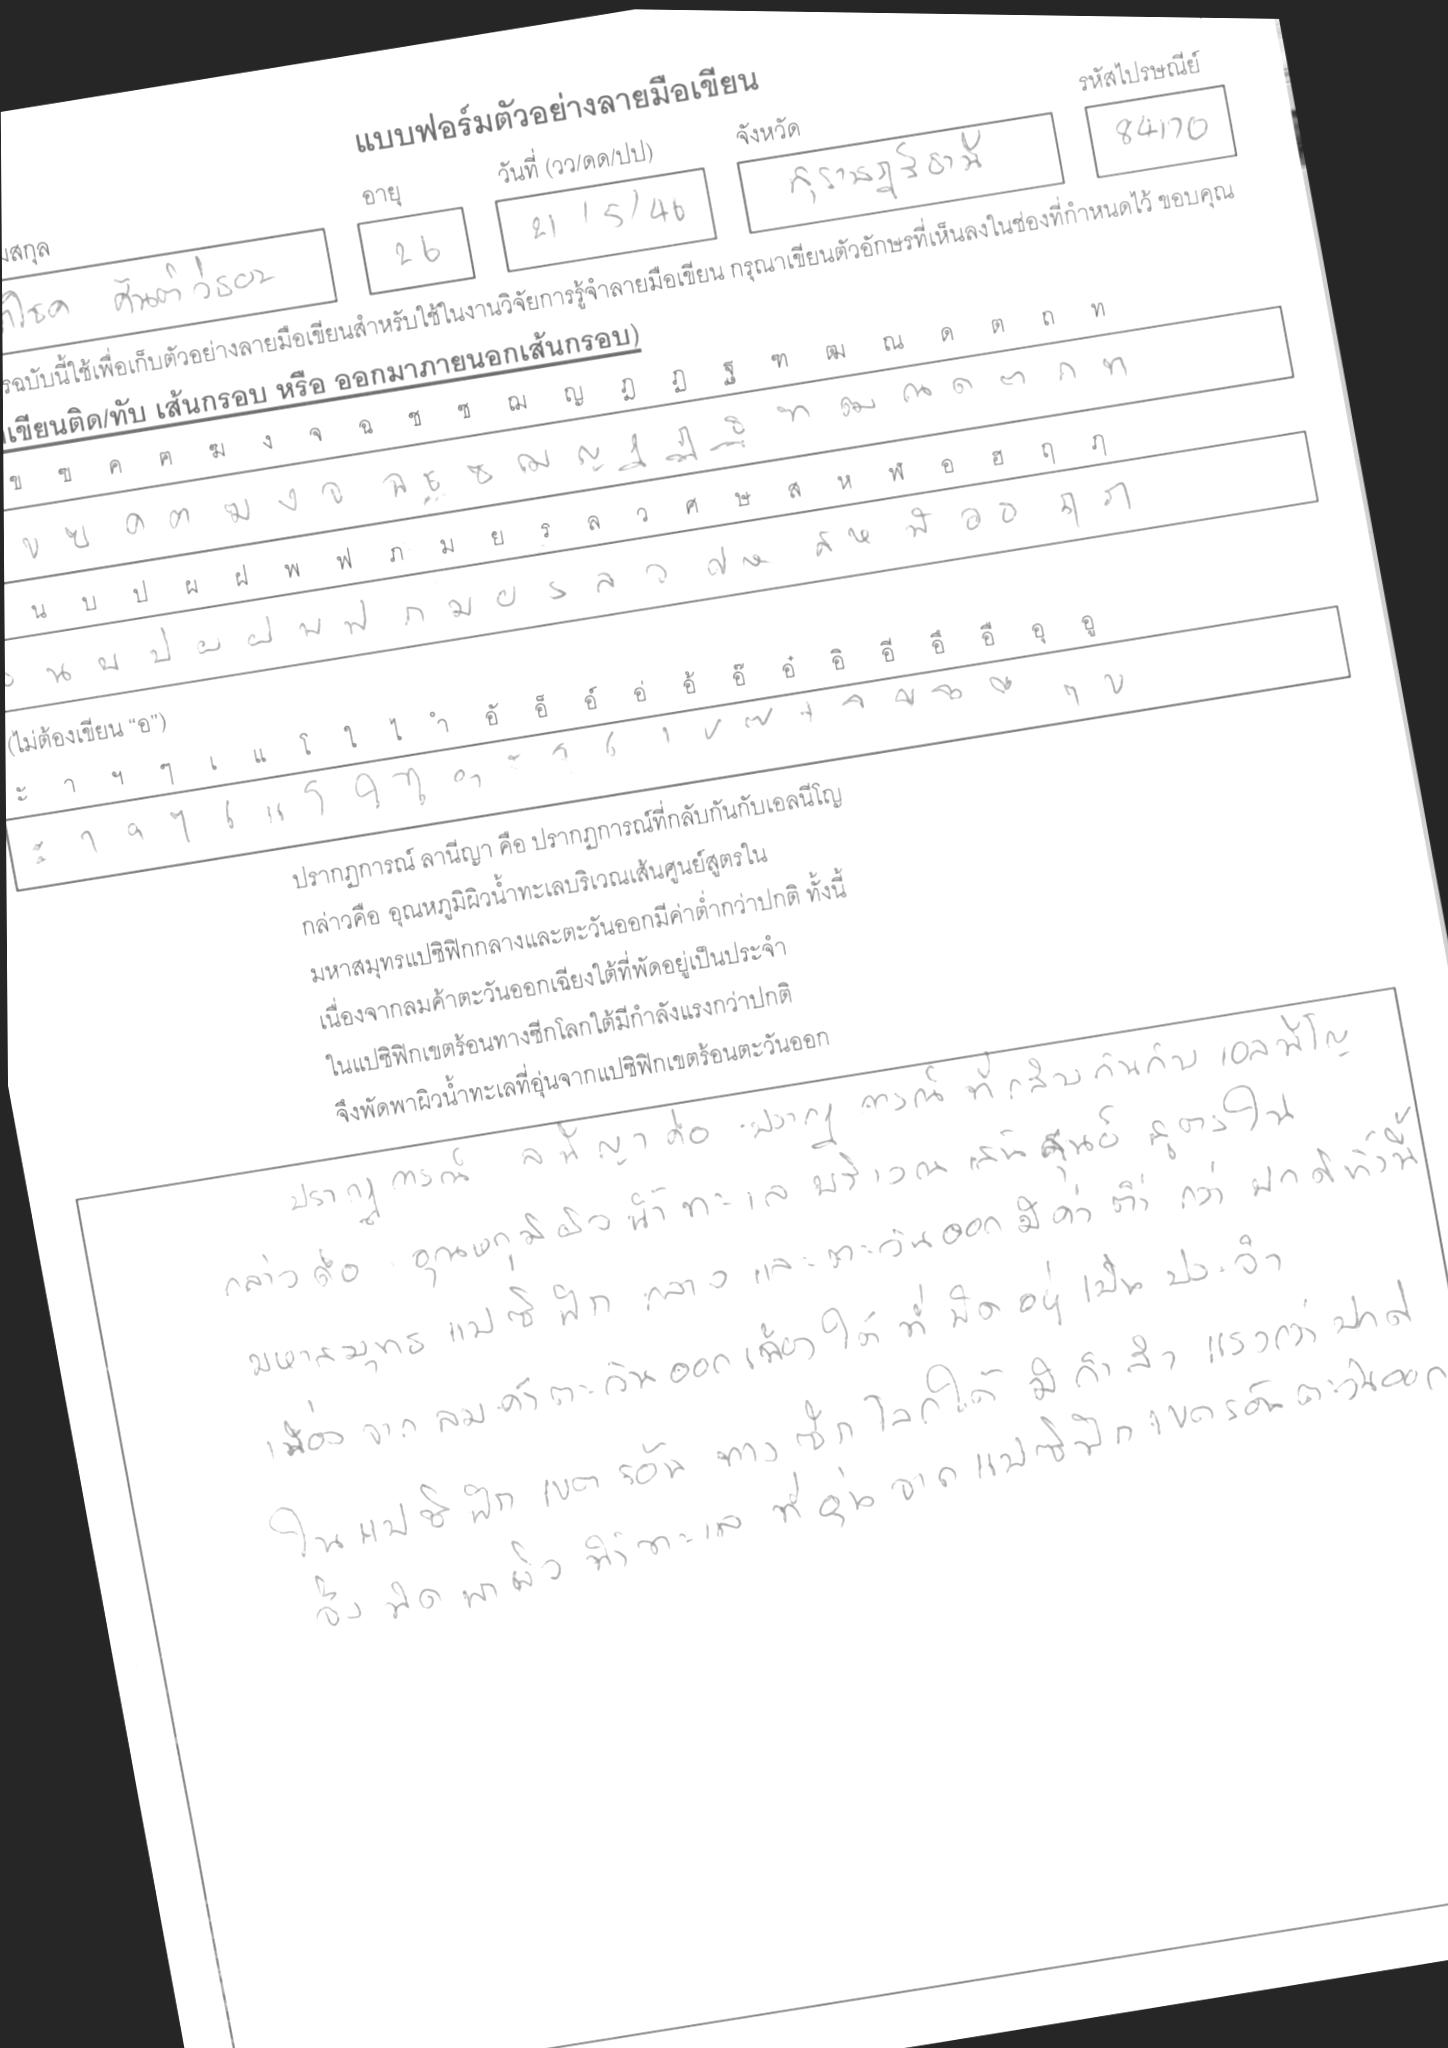 แบบฟอร์มตัวอย่างลายมือเขียน
มสกุล อายุ วันที่ (วว/ดด/ปป) จังหวัด รหัสไปรษณีย์
26 21/5/46 สุราษฎร์ธานี 84170
รฉบับนี้ใช้เพื่อเก็บตัวอย่างลายมือเขียนสำหรับใช้ในงานวิจัยการรู้จำลายมือเขียน กรุณาเขียนตัวอักษรที่เห็นลงในช่องที่กำหนดไว้ ขอบคุณ
เขียนติด/ทับ เส้นกรอบ หรือ ออกมาภายนอกเส้นกรอบ)
ข ฃ ค ฅ ฆ ง จ ฉ ช ซ ฌ ญ ฎ ฏ ฐ ฑ ฒ ณ ด ต ถ ท
ข ฃ ค ฅ ฆ ง จ ฉ ช ซ ฌ ญ ฎ ฏ ฐ ฑ ฒ ณ ด ต ถ ท
น บ ป ผ ฝ พ ฟ ภ ม ย ร ล ว ศ ษ ส ห ฬ อ ฮ ฤ ภ
น บ ป ผ ฝ พ ฟ ภ ม ย ร ล ว ศ ษ ส ห ฬ อ ฮ ฤ ภ
(ไม่ต้องเขียน “อ”)
ะ า ฯ ๆ เ แ โ ใ ไ ำ อั อ็ อ์ อ่ อ้ อ๊ อ๋ อิ อี อึ อื อุ อู
ะ า ฯ ๆ เ แ โ ใ ไ ำ
ปรากฏการณ์ ลานีญา คือ ปรากฏการณ์ที่กลับกันกับเอลนีโญ
กล่าวคือ อุณหภูมิผิวน้ำทะเลบริเวณเส้นศูนย์สูตรใน
มหาสมุทรแปซิฟิกกลางและตะวันออกมีค่าต่ำกว่าปกติ ทั้งนี้
เนื่องจากลมค้าตะวันออกเฉียงใต้ที่พัดอยู่เป็นประจำ
ในแปซิฟิกเขตร้อนทางซีกโลกใต้มีกำลังแรงกว่าปกติ
จึงพัดพาผิวน้ำทะเลที่อุ่นจากแปซิฟิกเขตร้อนตะวันออก
ปรากฏการณ์ ลานีญา คือ ปรากฏการณ์ ที่กลับกันกับ เอลนีโญ
กล่าวคือ อุณหภูมิผิวน้ำทะเล บริเวณ เส้นศูนย์ สูตรใน
มหาสมุทร แปซิฟิก กลาง และตะวันออก มีค่าต่ำ กว่า ปกติ ทั้งนี้
เนื่อง จาก ลม ค้าตะวันออก เฉียงใต้ ที่ พัด อยู่ เป็น ประจำ
ในแปซิฟิก เขต ร้อน ทาง ซีก โลกใต้ มีกำลัง แรงกว่า ปกติ
จึง พัด พาผิว น้ำทะเล ที่ อุ่น จาก แปซิฟิก เขต ร้อน ตะวันออก